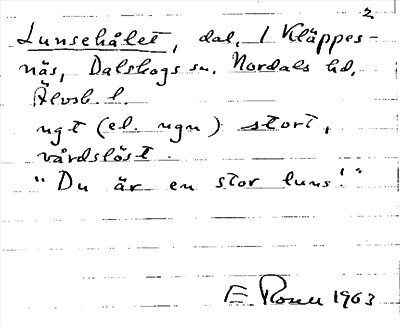 2
Lunsehålet, dal. 1 Kläppes-
näs, Dalskogs sn. Nordals hd.
Älvsb. l.
ngt (el. ngn) stort,
vårdslöst.
"Du är en stor luns!"
E. Rosell 1963